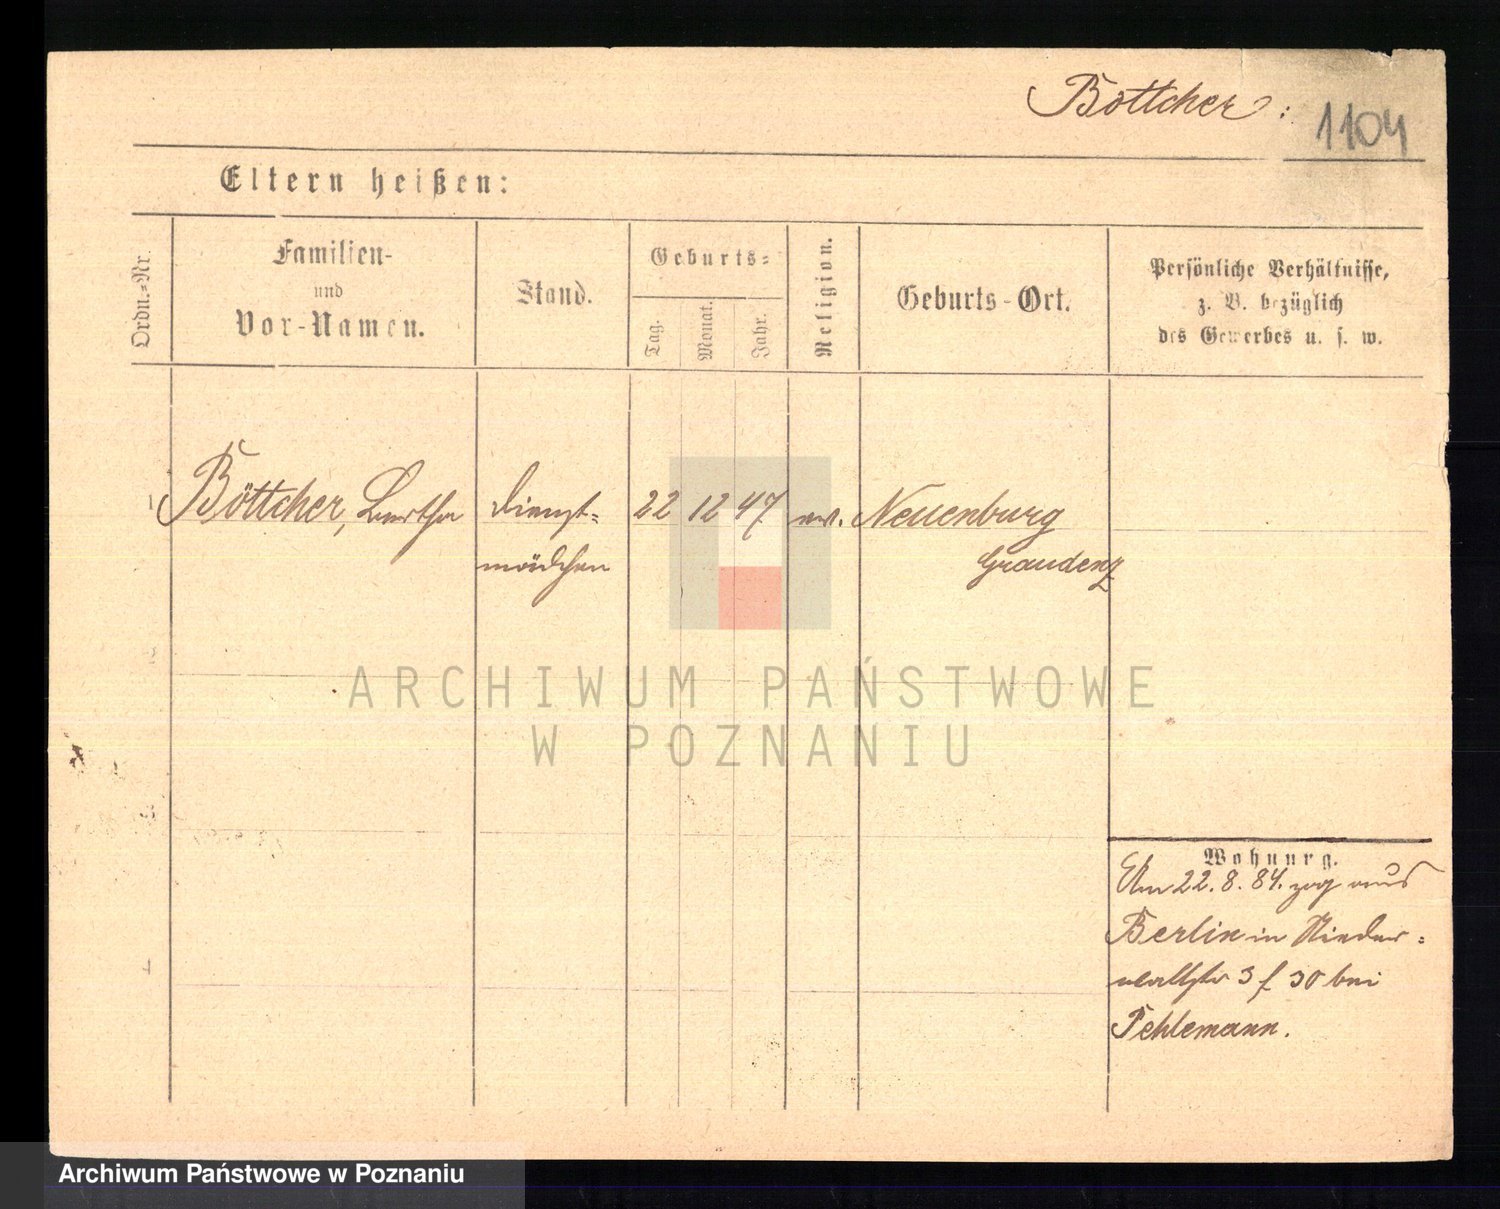 Böttcher:
1104
Eltern heißen:
Ordn.-Nr.
Familien-
und
Vor-Namen.
Stand.
Geburts-
Tag.
Monat.
Jahr.
Religion.
Geburts-Ort.
Persönliche Verhältnisse,
z. B. bezüglich
des Gewerbes u. s. w.
1 Böttcher, Bertha Dienst- 22 12 47 ev. Neuenburg
mädchen Graudenz
2
ARCHIWUM PAŃSTWOWE
W POZNANIU
3
Wohnung.
Am 22. 8. 84. zog aus
Berlin in Nieder-
wallstr 3 f 30 bei
4
Fehlemann.
Archiwum Państwowe w Poznaniu